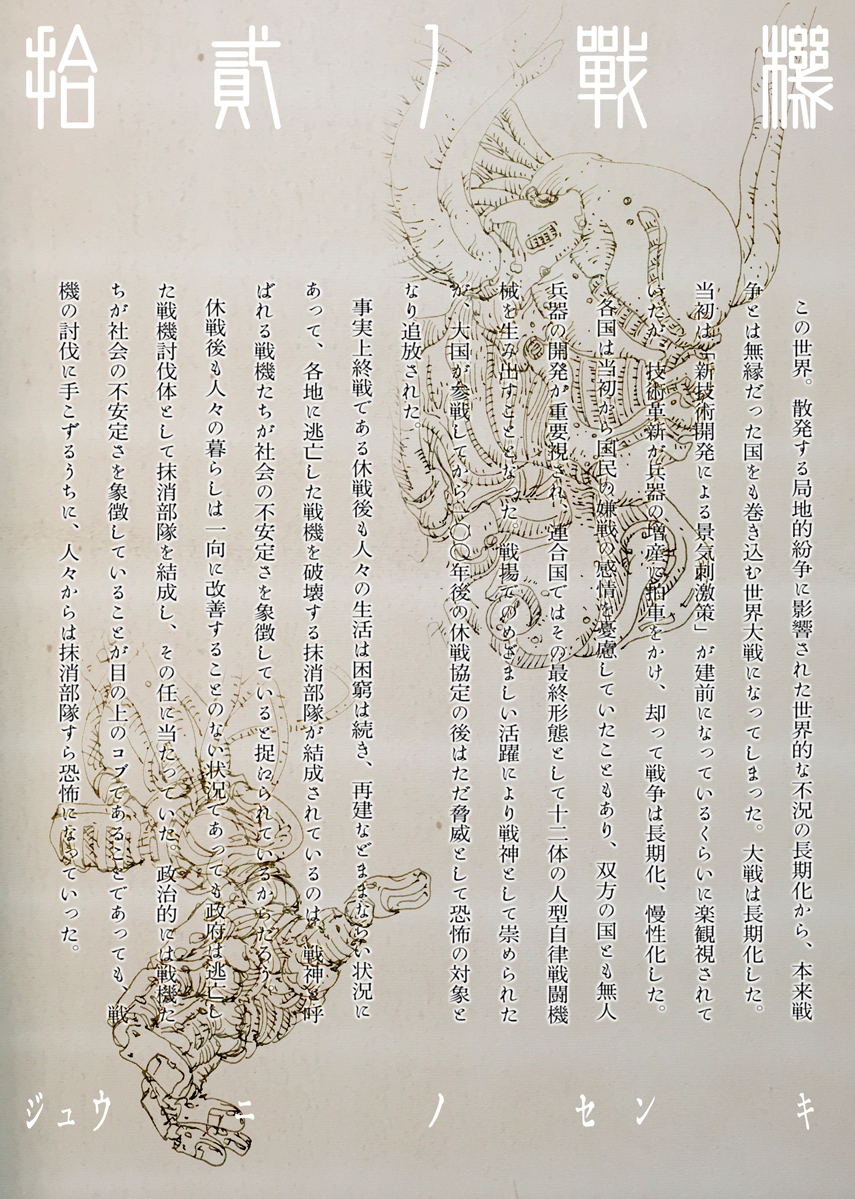 拾貳ノ戰機
この世界。散発する局地的紛争に影響された世界的な不況の長期化から、本来戦
争とは無縁だった国をも巻き込む世界大戦になってしまった。大戦は長期化した。
当初は「新技術開発による景気刺激策」が建前になっているくらいに楽観視されて
いたが、技術革新が兵器の増産に拍車をかけ、却って戦争は長期化、慢性化した。
各国は当初から国民の嫌戦の感情を憂慮していたこともあり、双方の国とも無人
兵器の開発が重要視され、連合国ではその最終形態として十二体の人型自律戦闘機
械を生み出すこととなった。戦場でのめざましい活躍により戦神として崇められた
が、大国が参戦してから一〇〇年後の休戦協定の後はただ脅威として恐怖の対象と
なり追放された。
事実上終戦である休戦後も人々の生活は困窮は続き、再建などままならい状況に
あって、各地に逃亡した戦機を破壊する抹消部隊が結成されているのは、戦神と呼
ばれる戦機たちが社会の不安定さを象徴していると捉えられているからだろう。
休戦後も人々の暮らしは一向に改善することのない状況であっても政府は逃亡し
た戦機討伐体として抹消部隊を結成し、その任に当たっていた。政治的には戦機た
ちが社会の不安定さを象徴していることが目の上のコブであることであっても、戦
機の討伐に手こずるうちに、人々からは抹消部隊すら恐怖になっていった。
ジュウニノセンキ